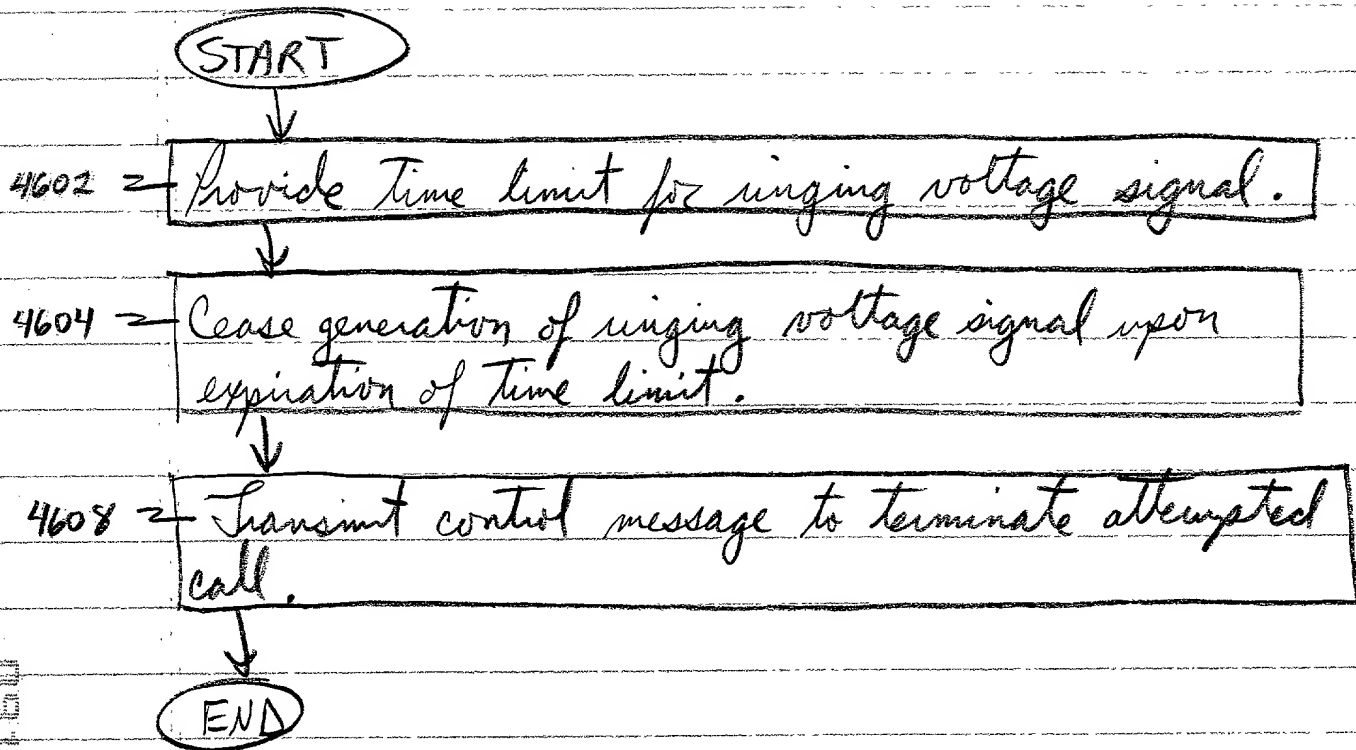 START
4602 Provide time limit for ringing voltage signal.
4604 Cease generation of ringing voltage signal upon
expiration of time limit.
4608 Transmit control message to terminate attempted
call.
END